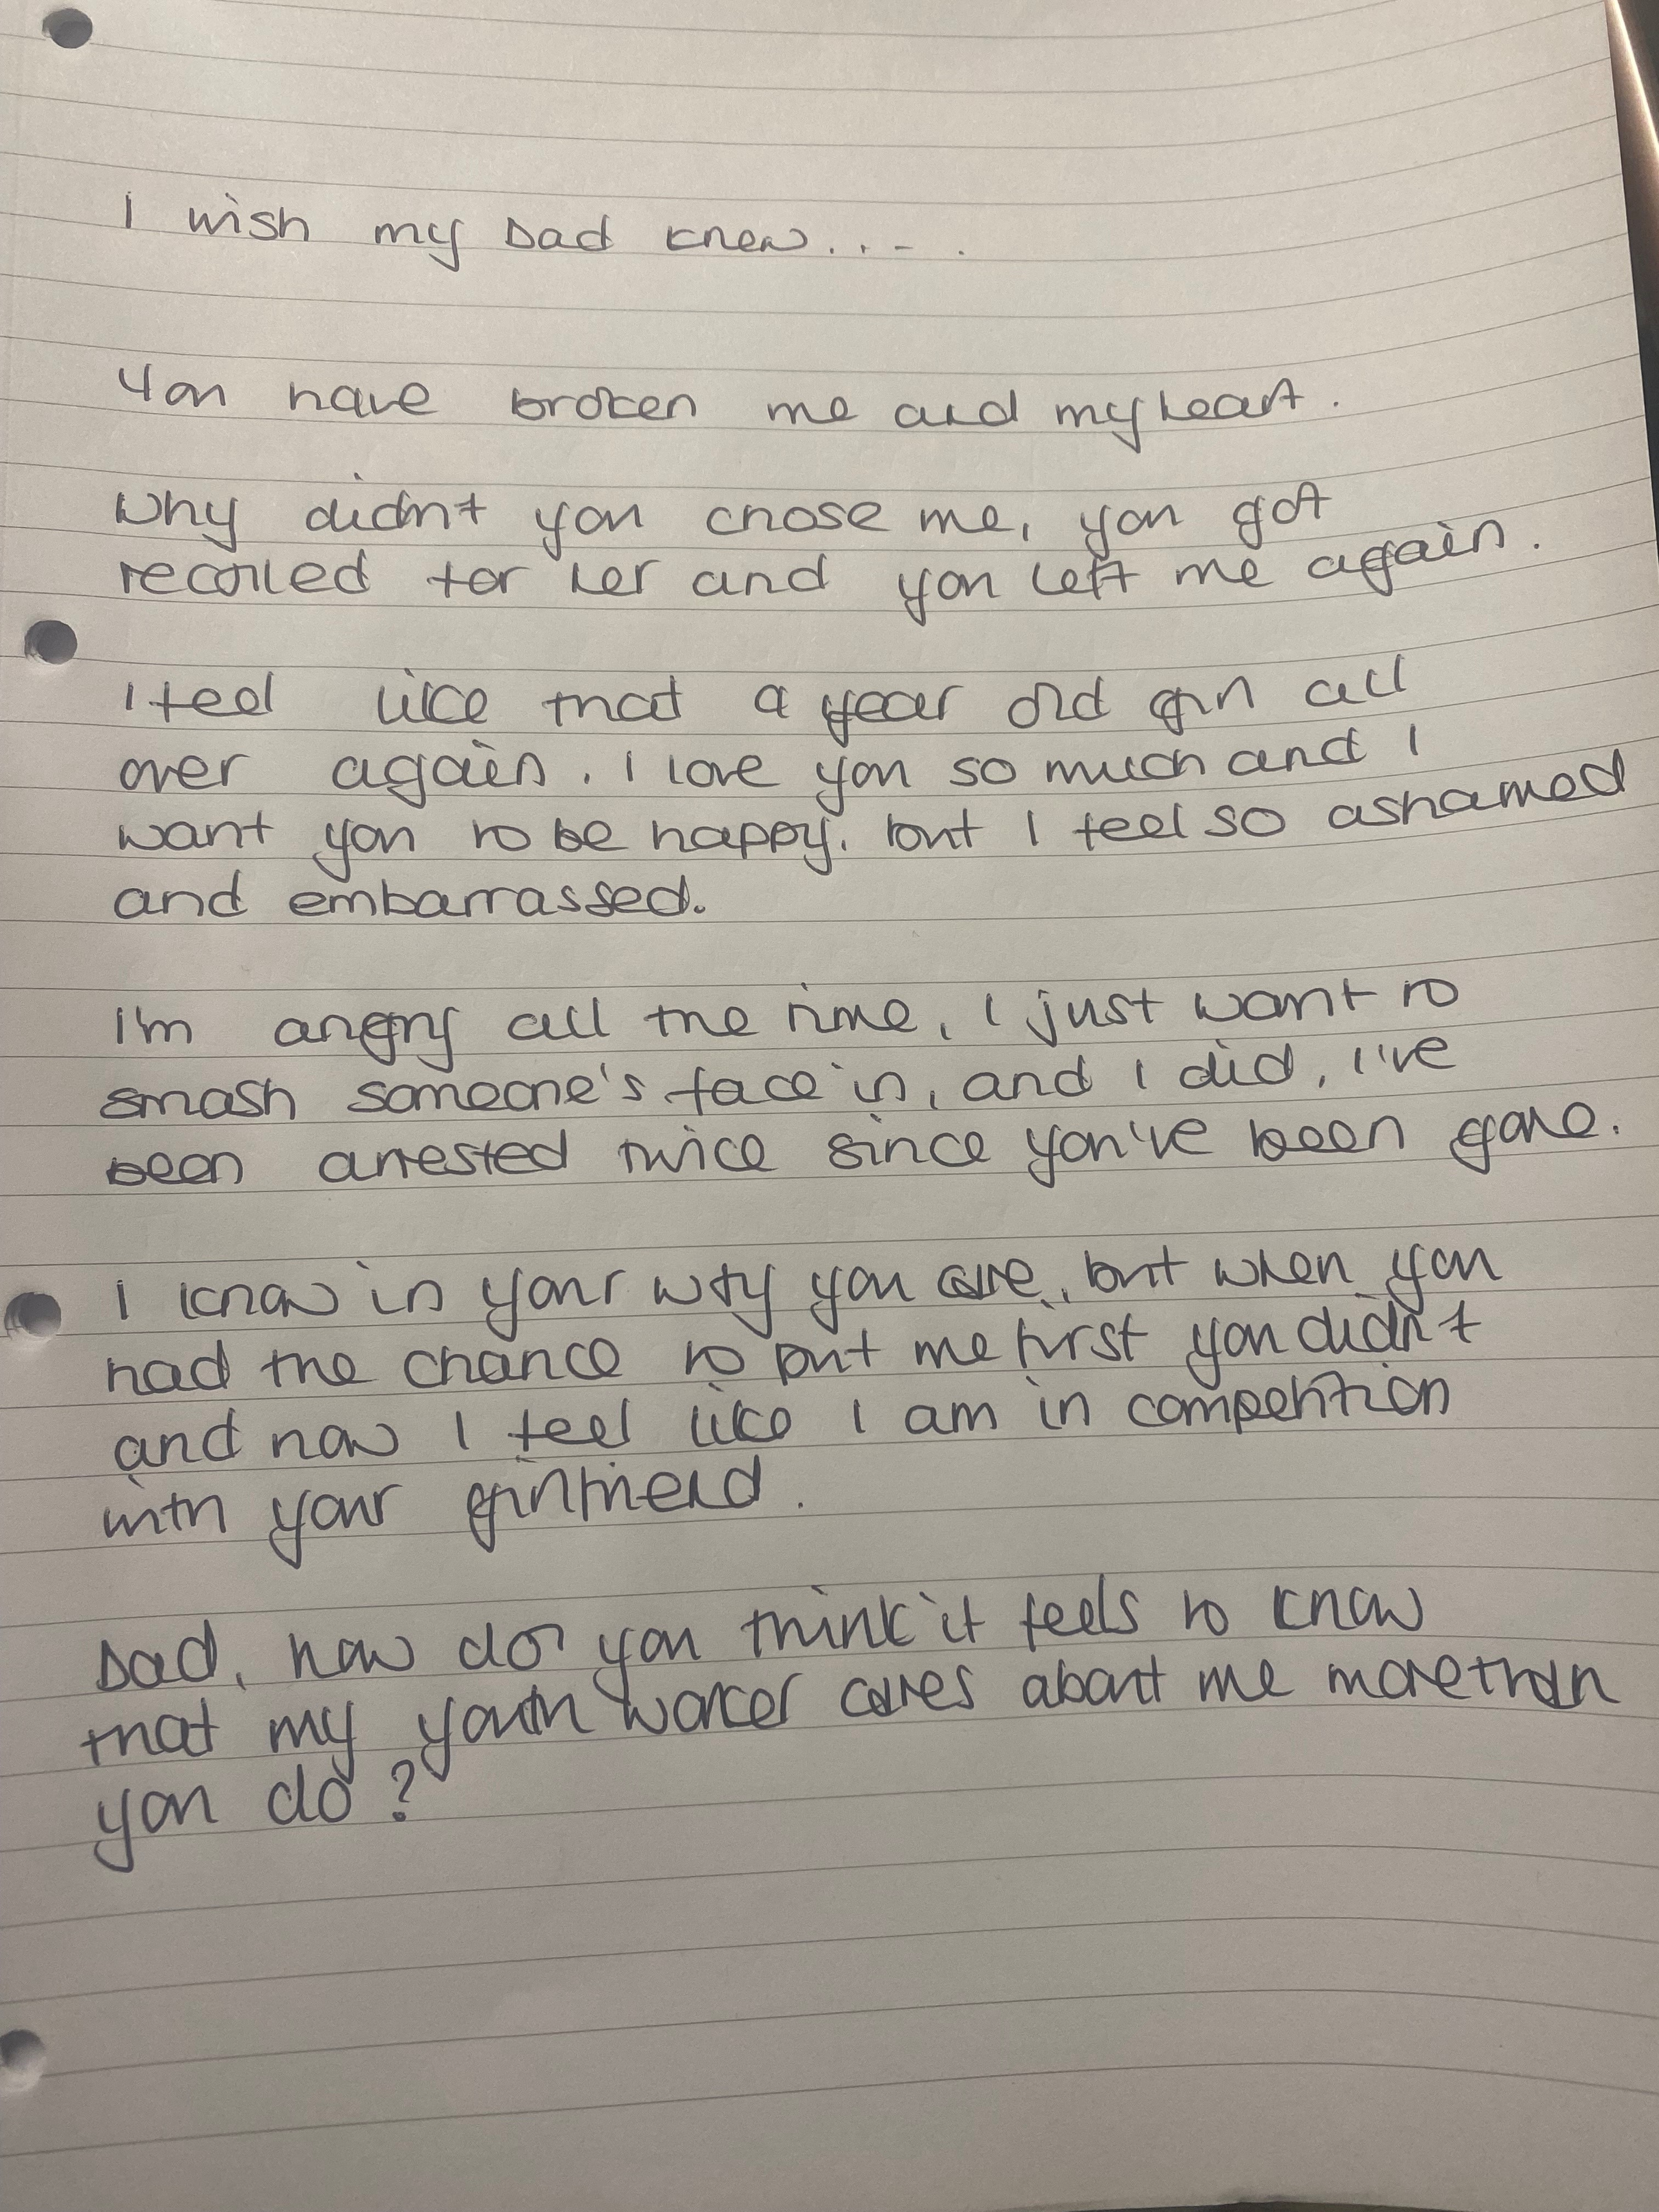 I wish my Dad knew.....
You have broken me and my heart.
Why didn't you chose me, you got
recalled for her and you left me again.
I feel like that 9 year old girl all
over again. I love you so much and I
want you to be happy. but I feel so ashamed
and embarrassed.
I'm angry all the time, I just want to
smash someone's face in, and I did, I've
been arrested twice since you've been gone.
I know in your way you care, but when you
had the chance to put me first you didn't
and now I feel like I am in competition
with your girlfriend.
Dad, how do you think it feels to know
that my youth worker cares about me more than
you do?